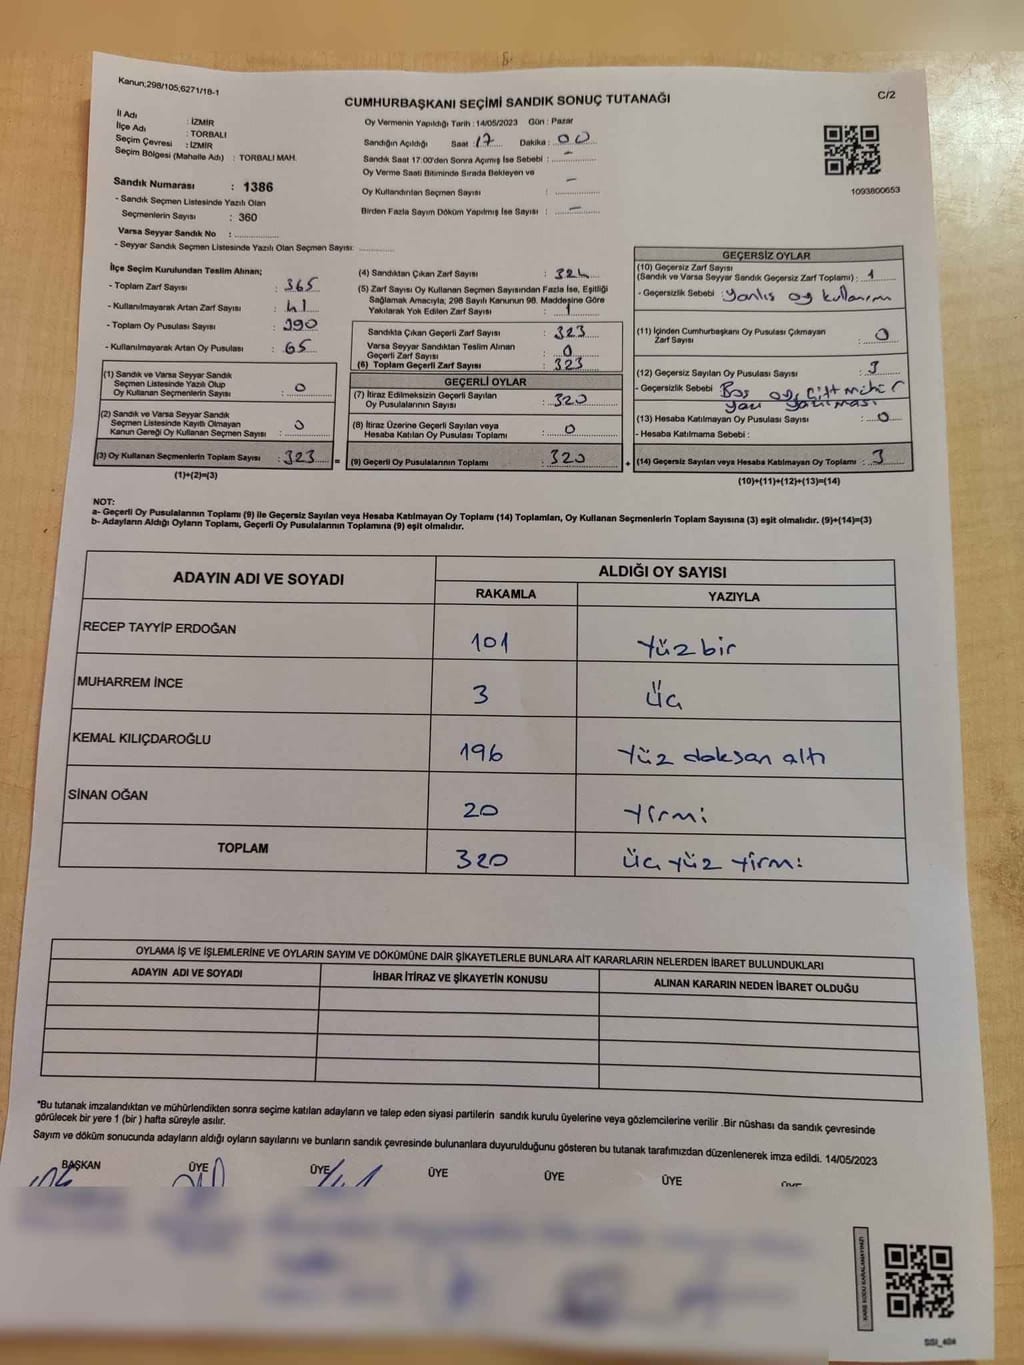 Kanun;298/105,6271/18-1
C/2
CUMHURBAŞKANI SEÇİMİ SANDIK SONUÇ TUTANAĞI
İl Adı : İZMİR
İlçe Adı : TORBALI
Seçim Çevresi : İZMİR
Seçim Bölgesi (Mahalle Adı) : TORBALI MAH.
Oy Vermenin Yapıldığı Tarih : 14/05/2023 Gün : Pazar
Sandığın Açıldığı Saat : 17 Dakika : 00
Sandık Saat 17:00'den Sonra Açımış İse Sebebi : -
Oy Verme Saati Bitiminde Sırada Bekleyen ve
Oy Kullandırılan Seçmen Sayısı : -
Birden Fazla Sayım Döküm Yapılmış İse Sayısı : -
1093800653
Sandık Numarası : 1386
- Sandık Seçmen Listesinde Yazılı Olan
Seçmenlerin Sayısı : 360
Varsa Seyyar Sandık No :
- Seyyar Sandık Seçmen Listesinde Yazılı Olan Seçmen Sayısı:
İlçe Seçim Kurulundan Teslim Alınan;
- Toplam Zarf Sayısı : 365
- Kullanılmayarak Artan Zarf Sayısı : 41
- Toplam Oy Pusulası Sayısı : 390
- Kullanılmayarak Artan Oy Pusulası : 65
(1) Sandık ve Varsa Seyyar Sandık
Seçmen Listesinde Yazılı Olup
Oy Kullanan Seçmenlerin Sayısı : 0
(2) Sandık ve Varsa Seyyar Sandık
Seçmen Listesinde Kayıtlı Olmayan
Kanun Gereği Oy Kullanan Seçmen Sayısı : 0
(3) Oy Kullanan Seçmenlerin Toplam Sayısı : 323
(1)+(2)=(3)
(4) Sandıktan Çıkan Zarf Sayısı : 324
(5) Zarf Sayısı Oy Kullanan Seçmen Sayısından Fazla İse, Eşitliği
Sağlamak Amacıyla; 298 Sayılı Kanunun 98. Maddesine Göre
Yakılarak Yok Edilen Zarf Sayısı : 1
Sandıkta Çıkan Geçerli Zarf Sayısı : 323
Varsa Seyyar Sandıktan Teslim Alınan
Geçerli Zarf Sayısı : 0
(6) Toplam Geçerli Zarf Sayısı : 323
GEÇERLİ OYLAR
(7) İtiraz Edilmeksizin Geçerli Sayılan
Oy Pusulalarının Sayısı : 320
(8) İtiraz Üzerine Geçerli Sayılan veya
Hesaba Katılan Oy Pusulası Toplamı : 0
= (9) Geçerli Oy Pusulalarının Toplamı : 320 +
GEÇERSİZ OYLAR
(10) Geçersiz Zarf Sayısı
(Sandık ve Varsa Seyyar Sandık Geçersiz Zarf Toplamı) : 1
- Geçersizlik Sebebi : Yanlış oy kullanımı
(11) İçinden Cumhurbaşkanı Oy Pusulası Çıkmayan
Zarf Sayısı : 0
(12) Geçersiz Sayılan Oy Pusulası Sayısı : 3
- Geçersizlik Sebebi : Boş oy, Çift mühür
yazı yazılması
(13) Hesaba Katılmayan Oy Pusulası Sayısı : 0
- Hesaba Katılmama Sebebi :
(14) Geçersiz Sayılan veya Hesaba Katılmayan Oy Toplamı : 3
(10)+(11)+(12)+(13)=(14)
NOT:
a- Geçerli Oy Pusulalarının Toplamı (9) ile Geçersiz Sayılan veya Hesaba Katılmayan Oy Toplamı (14) Toplamları, Oy Kullanan Seçmenlerin Toplam Sayısına (3) eşit olmalıdır. (9)+(14)=(3)
b- Adayların Aldığı Oyların Toplamı, Geçerli Oy Pusulalarının Toplamına (9) eşit olmalıdır.
ADAYIN ADI VE SOYADI
ALDIĞI OY SAYISI
RAKAMLA YAZIYLA
RECEP TAYYİP ERDOĞAN 101 Yüz bir
MUHARREM İNCE 3 Üç
KEMAL KILIÇDAROĞLU 196 Yüz doksan altı
SİNAN OĞAN 20 Yirmi
TOPLAM 320 Üç yüz yirmi
OYLAMA İŞ VE İŞLEMLERİNE VE OYLARIN SAYIM VE DÖKÜMÜNE DAİR ŞİKAYETLERLE BUNLARA AİT KARARLARIN NELERDEN İBARET BULUNDUKLARI
ADAYIN ADI VE SOYADI İHBAR İTİRAZ VE ŞİKAYETİN KONUSU ALINAN KARARIN NEDEN İBARET OLDUĞU
*Bu tutanak imzalandıktan ve mühürlendikten sonra seçime katılan adayların ve talep eden siyasi partilerin sandık kurulu üyelerine veya gözlemcilerine verilir .Bir nüshası da sandık çevresinde
görülecek bir yere 1 (bir ) hafta süreyle asılır.
Sayım ve döküm sonucunda adayların aldığı oyların sayılarını ve bunların sandık çevresinde bulunanlara duyurulduğunu gösteren bu tutanak tarafımızdan düzenlenerek imza edildi. 14/05/2023
BAŞKAN ÜYE ÜYE ÜYE ÜYE ÜYE
KARE KODU KARALAMAYINIZ!
SSI_404